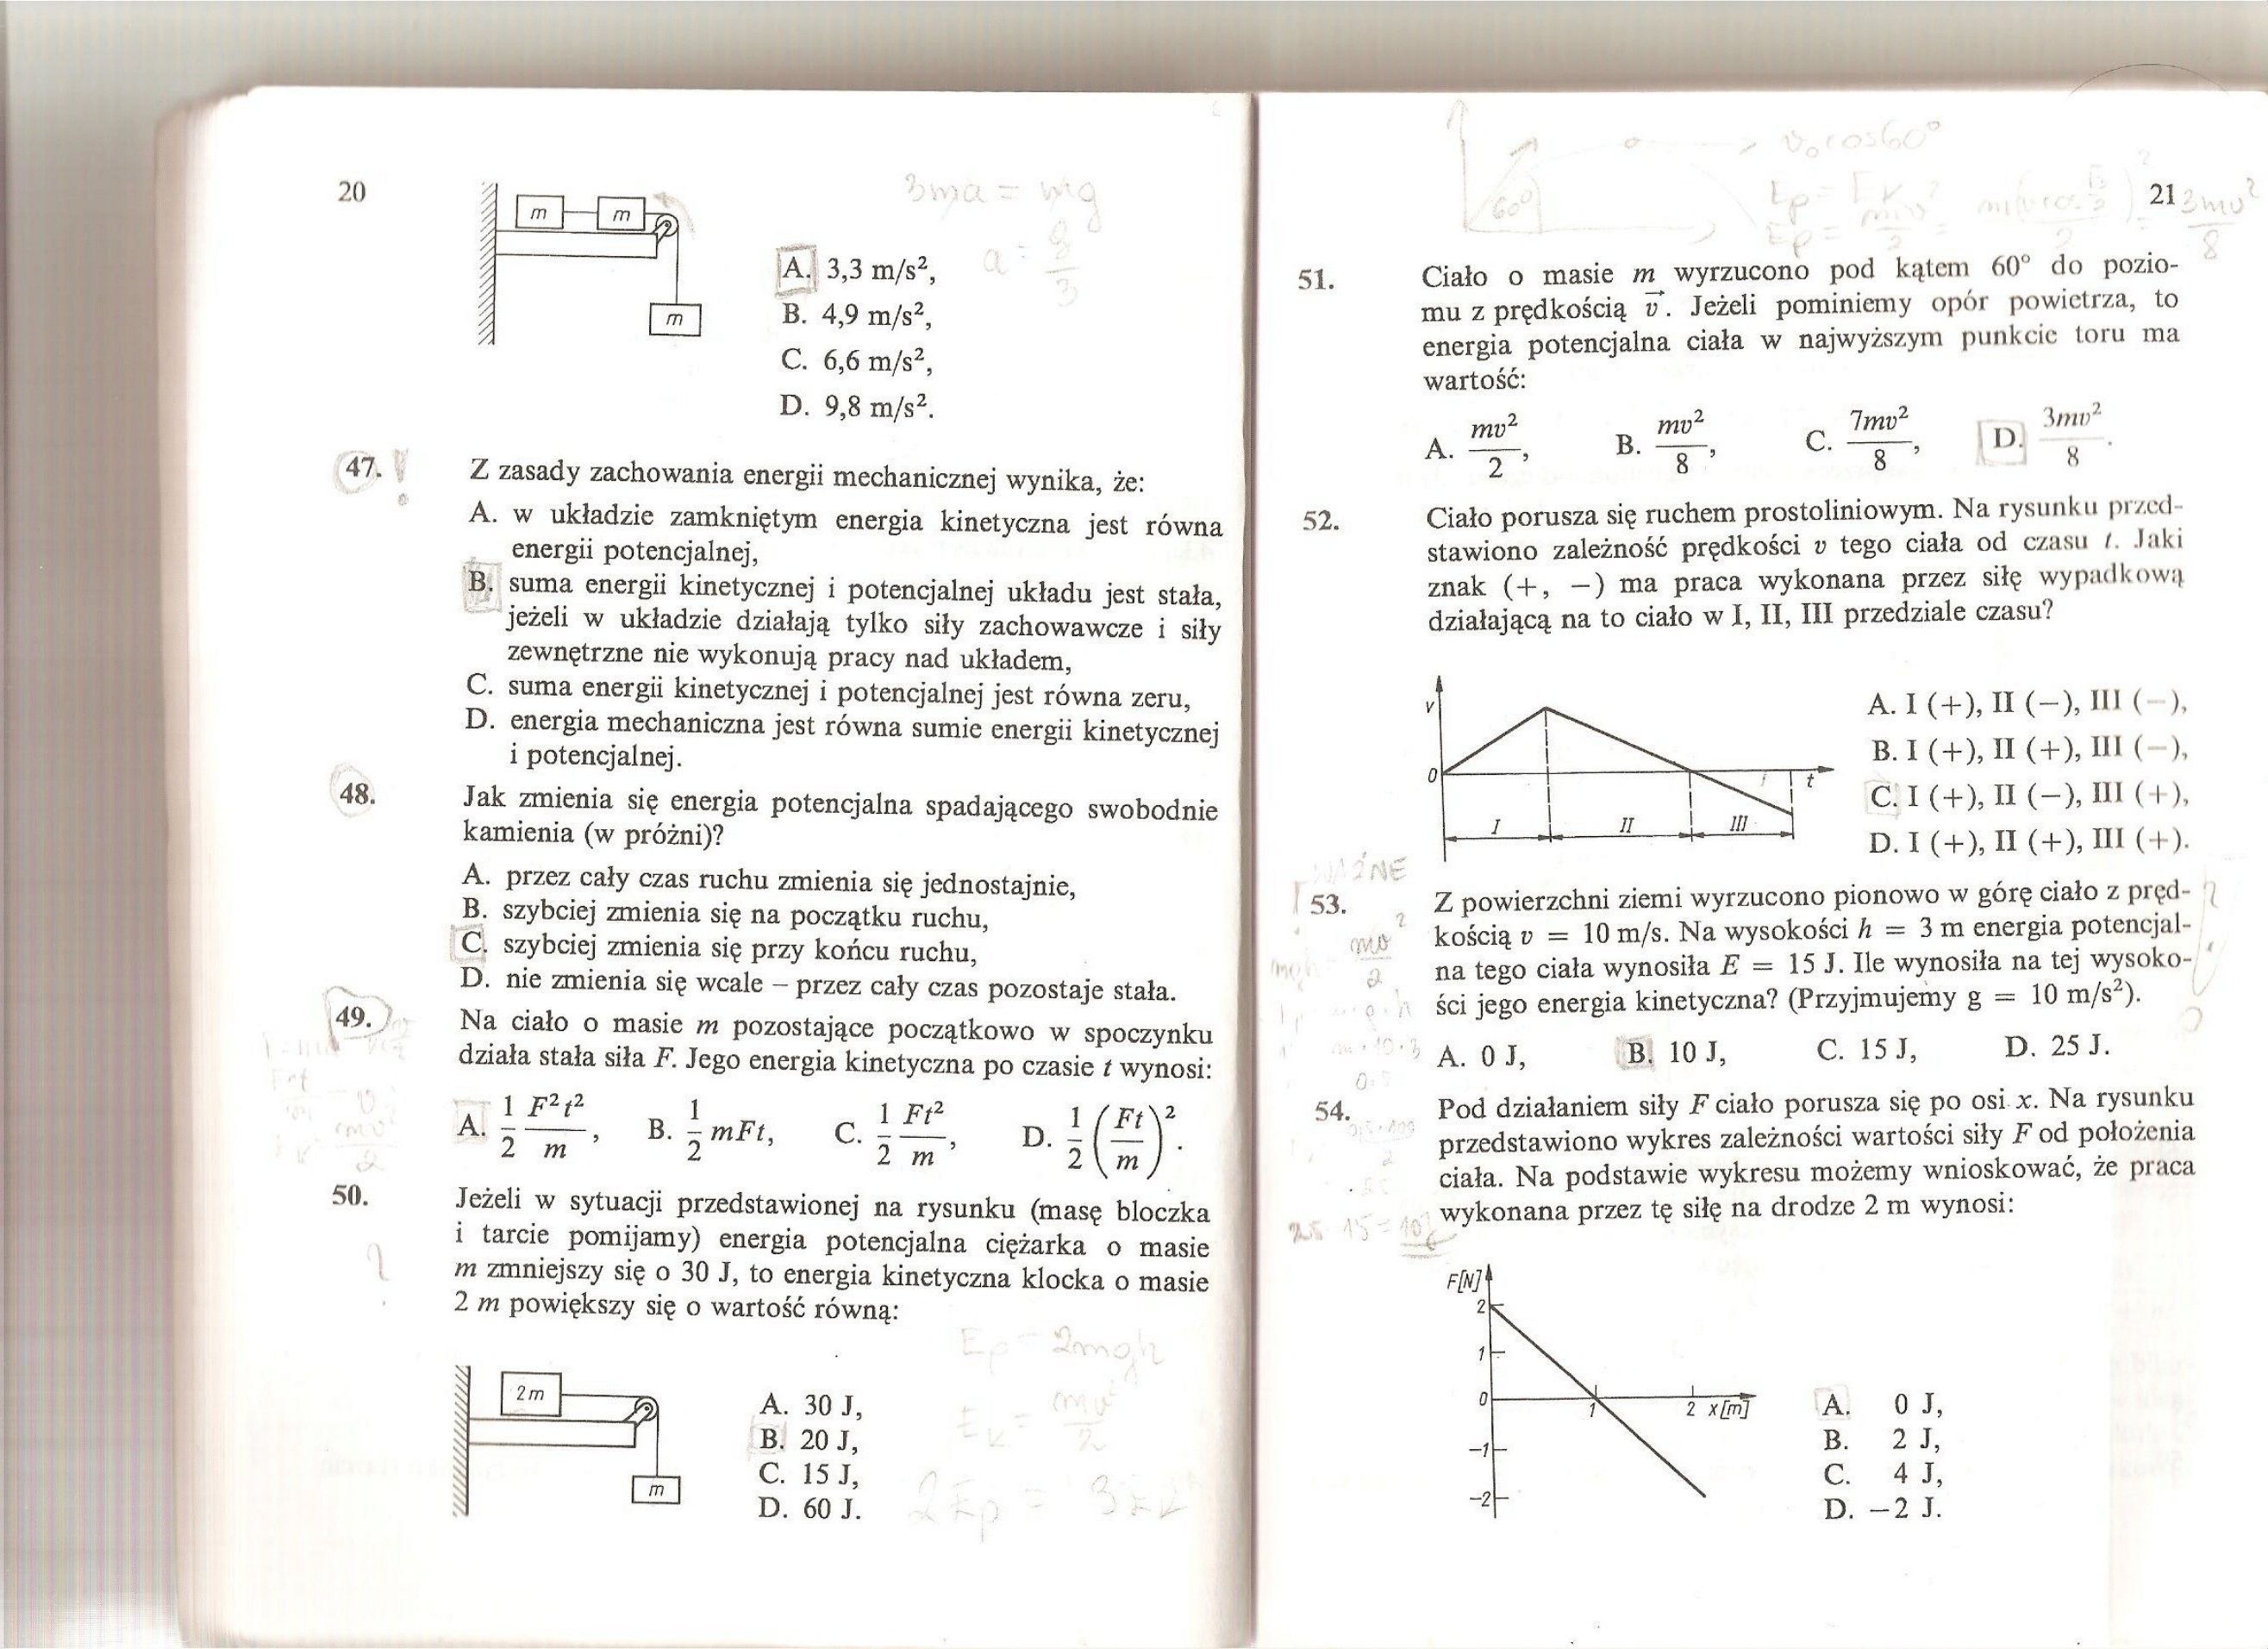 20
m m
m
3ma = mg
a = g/3
A. 3,3 m/s²,
B. 4,9 m/s²,
C. 6,6 m/s²,
D. 9,8 m/s².
47. !
Z zasady zachowania energii mechanicznej wynika, że:
A. w układzie zamkniętym energia kinetyczna jest równa
energii potencjalnej,
B. suma energii kinetycznej i potencjalnej układu jest stała,
jeżeli w układzie działają tylko siły zachowawcze i siły
zewnętrzne nie wykonują pracy nad układem,
C. suma energii kinetycznej i potencjalnej jest równa zeru,
D. energia mechaniczna jest równa sumie energii kinetycznej
i potencjalnej.
48. Jak zmienia się energia potencjalna spadającego swobodnie
kamienia (w próżni)?
A. przez cały czas ruchu zmienia się jednostajnie,
B. szybciej zmienia się na początku ruchu,
C. szybciej zmienia się przy końcu ruchu,
D. nie zmienia się wcale – przez cały czas pozostaje stała.
49. Na ciało o masie m pozostające początkowo w spoczynku
działa stała siła F. Jego energia kinetyczna po czasie t wynosi:
A. 1/2 F²t²/m, B. 1/2 mFt, C. 1/2 Ft²/m, D. 1/2 (Ft/m)².
50. Jeżeli w sytuacji przedstawionej na rysunku (masę bloczka
i tarcie pomijamy) energia potencjalna ciężarka o masie
m zmniejszy się o 30 J, to energia kinetyczna klocka o masie
2 m powiększy się o wartość równą:
2m
m
A. 30 J,
B. 20 J,
C. 15 J,
D. 60 J.
v₀cos60°
60°
21
51. Ciało o masie m wyrzucono pod kątem 60° do pozio-
mu z prędkością v. Jeżeli pominiemy opór powietrza, to
energia potencjalna ciała w najwyższym punkcie toru ma
wartość:
A. mv²/2, B. mv²/8, C. 7mv²/8, D. 3mv²/8.
52. Ciało porusza się ruchem prostoliniowym. Na rysunku przed-
stawiono zależność prędkości v tego ciała od czasu t. Jaki
znak (+, −) ma praca wykonana przez siłę wypadkową
działającą na to ciało w I, II, III przedziale czasu?
v
0 t
I II III
A. I (+), II (−), III (−),
B. I (+), II (+), III (−),
C. I (+), II (−), III (+),
D. I (+), II (+), III (+).
WAŻNE
53. Z powierzchni ziemi wyrzucono pionowo w górę ciało z pręd-
kością v = 10 m/s. Na wysokości h = 3 m energia potencjal-
na tego ciała wynosiła E = 15 J. Ile wynosiła na tej wysoko-
ści jego energia kinetyczna? (Przyjmujemy g = 10 m/s²).
A. 0 J, B. 10 J, C. 15 J, D. 25 J.
54. Pod działaniem siły F ciało porusza się po osi x. Na rysunku
przedstawiono wykres zależności wartości siły F od położenia
ciała. Na podstawie wykresu możemy wnioskować, że praca
wykonana przez tę siłę na drodze 2 m wynosi:
F[N]
2
1
0 1 2 x[m]
−1
−2
A. 0 J,
B. 2 J,
C. 4 J,
D. −2 J.